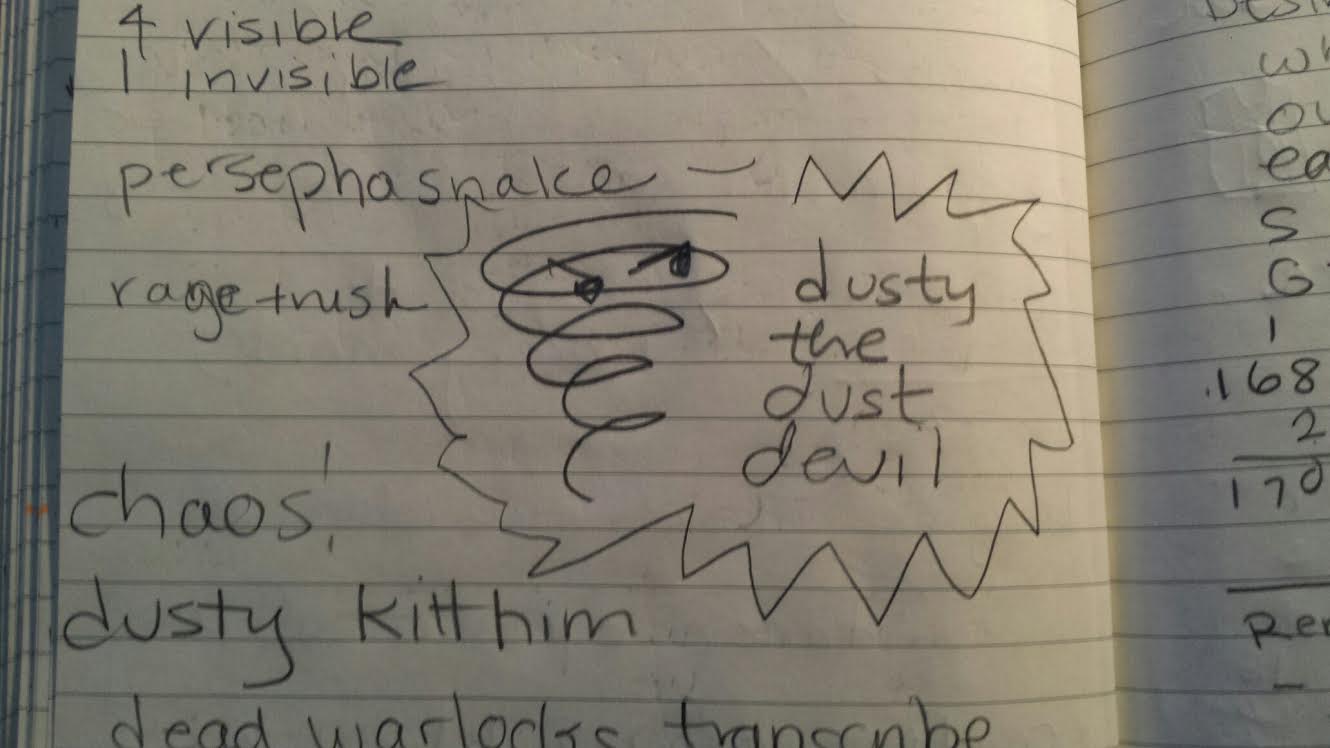 4 visible
1 invisible
persephasnake —
rage + rush
dusty
the
dust
devil
chaos!
dusty kill him
dead warlocks transcribe
wh
ou
ea
S
G
1
.168
2
170
Rer
–